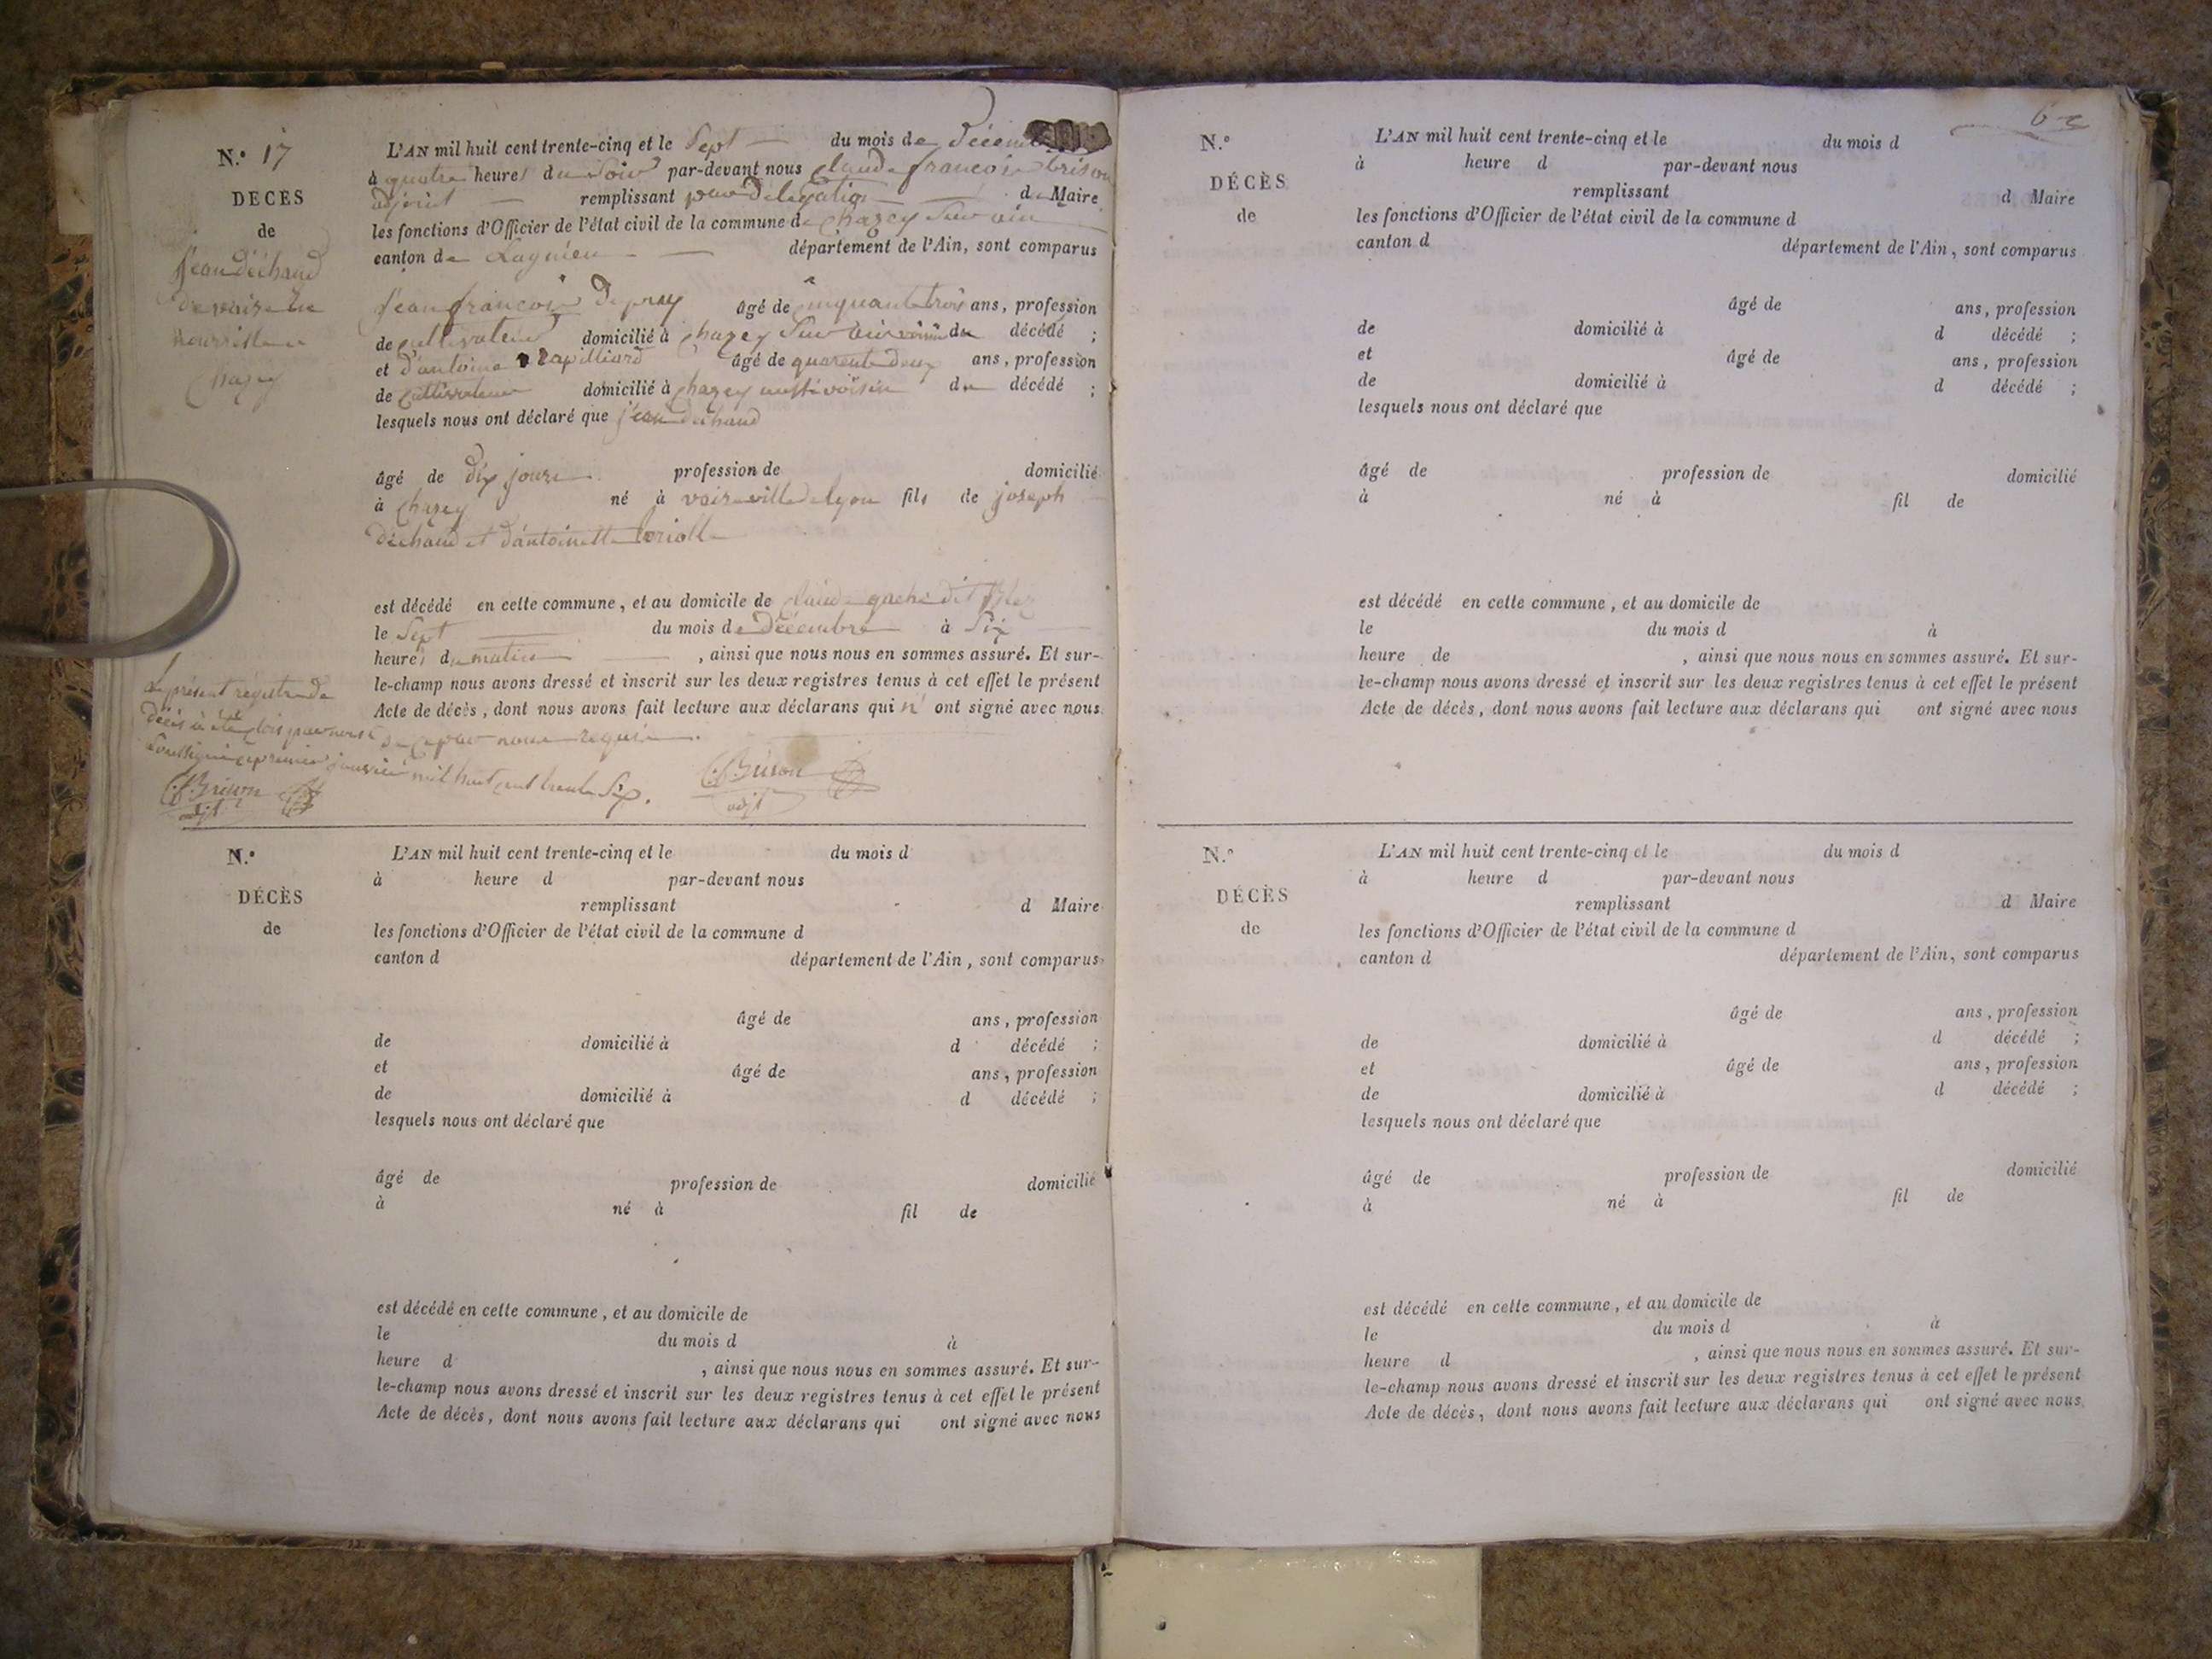 N.° 17
DECES
de
jean déchaud
de vaize en
nourrisse a
chazey
L'AN mil huit cent trente-cinq et le Sept du mois de Décem
à quatre heures du Soir par-devant nous Claude françois brison
adjoint remplissant par délégation de Maire
les fonctions d'Officier de l'état civil de la commune de chazey Sur ain
canton de Lagnieu département de l'Ain, sont comparus
jean françois âgé de cinquante trois ans, profession
de cultivateur domicilié à chazey Sur ain voisin du décédé ;
et d'antoine âgé de quarente deux ans, profession
de Cultivateur domicilié à chazey aussi voisin du décédé ;
lesquels nous ont déclaré que jean déchaud
âgé de dix jours profession de domicilié
à Chazey né à vaize ville de lyon fils de joseph
déchaud et d'antoinette
est décédé en cette commune, et au domicile de Claude gache dit
le Sept du mois de Décembre à Six
heures du matin , ainsi que nous nous en sommes assuré. Et sur-
le-champ nous avons dressé et inscrit sur les deux registres tenus à cet effet le présent
Acte de décès, dont nous avons fait lecture aux déclarans qui n' ont signé avec nous
de ce par nous requis.
Le présent régistre de
décès à été clos par nous
Soussigné ce premier janvier mil huit cent trente Six.
C. f. Brison
adjt
C. f. Brison
adjt
N.°
DÉCÈS
de
L'AN mil huit cent trente-cinq et le du mois d
à heure d par-devant nous
remplissant d Maire
les fonctions d'Officier de l'état civil de la commune d
canton d département de l'Ain, sont comparus
âgé de ans, profession
de domicilié à d décédé ;
et âgé de ans, profession
de domicilié à d décédé ;
lesquels nous ont déclaré que
âgé de profession de domicilié
à né à fil de
est décédé en cette commune, et au domicile de
le du mois d à
heure d , ainsi que nous nous en sommes assuré. Et sur-
le-champ nous avons dressé et inscrit sur les deux registres tenus à cet effet le présent
Acte de décès, dont nous avons fait lecture aux déclarans qui ont signé avec nous
N.°
DÉCÈS
de
L'AN mil huit cent trente-cinq et le du mois d
à heure d par-devant nous
remplissant d Maire
les fonctions d'Officier de l'état civil de la commune d
canton d département de l'Ain, sont comparus
âgé de ans, profession
de domicilié à d décédé ;
et âgé de ans, profession
de domicilié à d décédé ;
lesquels nous ont déclaré que
âgé de profession de domicilié
à né à fil de
est décédé en cette commune, et au domicile de
le du mois d à
heure de , ainsi que nous nous en sommes assuré. Et sur-
le-champ nous avons dressé et inscrit sur les deux registres tenus à cet effet le présent
Acte de décès, dont nous avons fait lecture aux déclarans qui ont signé avec nous
N.°
DÉCÈS
de
L'AN mil huit cent trente-cinq et le du mois d
à heure d par-devant nous
remplissant d Maire
les fonctions d'Officier de l'état civil de la commune d
canton d département de l'Ain, sont comparus
âgé de ans, profession
de domicilié à d décédé ;
et âgé de ans, profession
de domicilié à d décédé ;
lesquels nous ont déclaré que
âgé de profession de domicilié
à né à fil de
est décédé en cette commune, et au domicile de
le du mois d à
heure d , ainsi que nous nous en sommes assuré. Et sur-
le-champ nous avons dressé et inscrit sur les deux registres tenus à cet effet le présent
Acte de décès, dont nous avons fait lecture aux déclarans qui ont signé avec nous